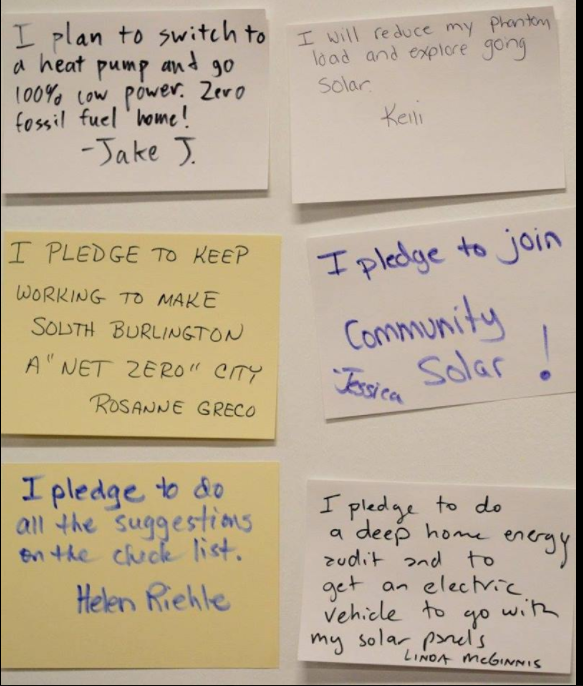 I plan to switch to
a heat pump and go
100% low power. Zero
fossil fuel home!
-Jake J.
I will reduce my phantom
load and explore going
solar.
Keili
I PLEDGE TO KEEP
WORKING TO MAKE
SOUTH BURLINGTON
A "NET ZERO" CITY
ROSANNE GRECO
I pledge to join
Community
Solar!
Jessica
I pledge to do
all the suggestions
on the check list.
Helen Riehle
I pledge to do
a deep home energy
audit and to
get an electric
vehicle to go with
my solar panels
LINDA McGINNIS